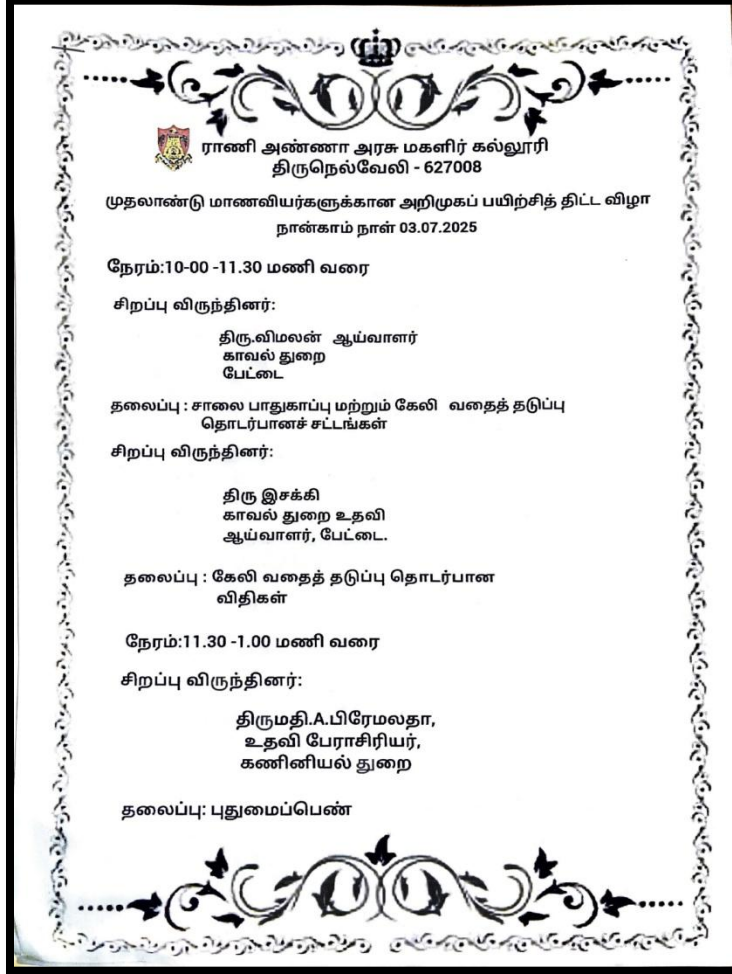 ராணி அண்ணா அரசு மகளிர் கல்லூரி
திருநெல்வேலி - 627008
முதலாண்டு மாணவியர்களுக்கான அறிமுகப் பயிற்சித் திட்ட விழா
நான்காம் நாள் 03.07.2025
நேரம்:10-00 -11.30 மணி வரை
சிறப்பு விருந்தினர்:
திரு.விமலன் ஆய்வாளர்
காவல் துறை
பேட்டை
தலைப்பு : சாலை பாதுகாப்பு மற்றும் கேலி வதைத் தடுப்பு
தொடர்பானச் சட்டங்கள்
சிறப்பு விருந்தினர்:
திரு இசக்கி
காவல் துறை உதவி
ஆய்வாளர், பேட்டை.
தலைப்பு : கேலி வதைத் தடுப்பு தொடர்பான
விதிகள்
நேரம்:11.30 -1.00 மணி வரை
சிறப்பு விருந்தினர்:
திருமதி.A.பிரேமலதா,
உதவி பேராசிரியர்,
கணினியல் துறை
தலைப்பு: புதுமைப்பெண்